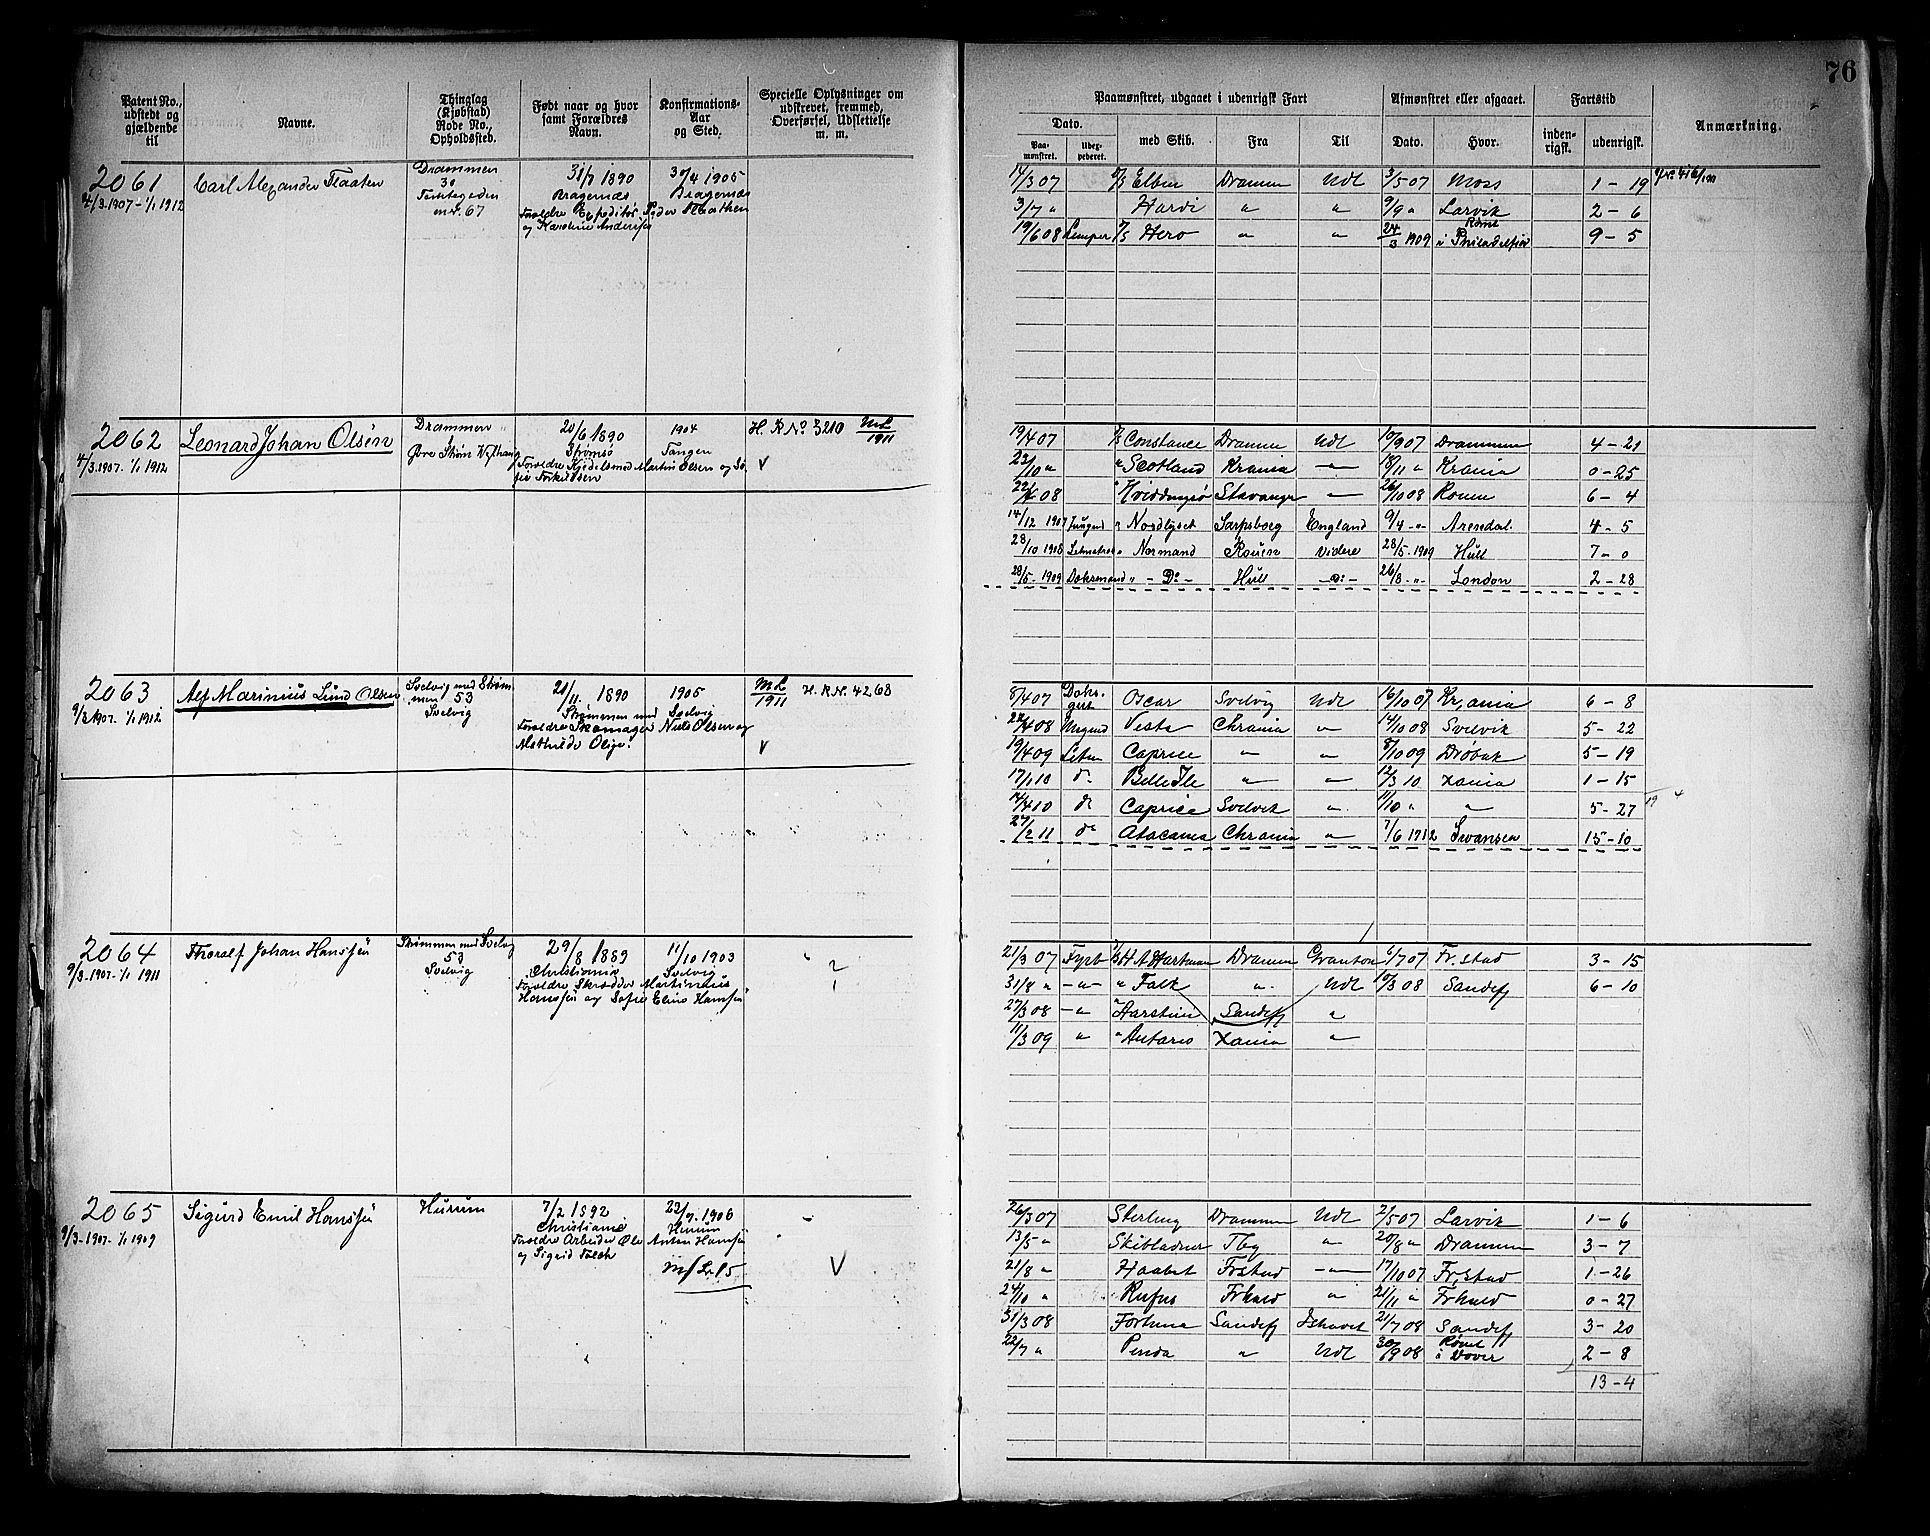 76
Patent No., udstedt og gjældende til
Navne.
Thinglag (Kjøbstad) Rode No., Opholdssted.
Født naar og hvor samt Forældres Navn.
Konfirmations-Aar og Sted.
Specielle Oplysninger om udskrevet, fremmed, Overførsel, Udslettelse m. m.
Paamønstret, udgaaet i udenrigsk Fart
Afmønstret eller afgaaet.
Fartstid
Anmærkning.
Dato.
Paamønstret.
med Skib.
Fra
Til
Dato.
Hvor.
indenrigsk.
udenrigsk.
2061
4/3.1907-1/1 1912
Carl Alexander Flaaten
Drammen
30
31/7 1890
Bragernæs
Forældre Expeditør Peder Flaathen
30/4 1905
Bragernæs
14/3 07 Elben Drammen Udl 3/5 07 Moss 1-19
3/7 " Hardi " " 9/9 " Larvik 2-6
19/6 08 Hero " " 24/3 1909 Rømt i Philadelfia 9-5
2062
4/3.1907. 1/1 1912
Leonard Johan Olsen
Drammen
20/6 1890
Strømsø
Forældre Kjedelsmed Martin Olsen og
1904
Tangen
H. R No. 3210
ML
1911
V
19/4 07 Constance Drammen Udl 10/9 07 Drammen 4-21
22/10 " Scotland Krania " 18/11 " Krania 0-25
08 Hviddingsø Stavanger " 26/10 08 Rouen 6-4
14/12 1907 Nordlyset Sarpsborg England 9/4 " Arendal. 4-5
28/10 1908 Normand Rouen videre 28/5 1909 Hull 7-0
28/5 1909 Do Hull Do 26/8 " London 2-28
2063
9/3.1907. 1/1 1912
Alf Marinius Lund Olsen
Svelvig med Strømmen
53
Svelvig
21/11 1890
Strømmen med
Forældre Skomager Niels Olsen og
Mathilde Olig.
1905
Svelvig
ML
1911
H. R No. 4268
V
8/4 07 Oscar Svelvig Udl 16/10 07 Kr,ania 6-8
22/4 08 Vesta Chrania " 14/10 08 Svelvik 5-22
19/4 09 Caprice " " 8/10 09 Drøbak 5-19
17/1 10 do Belle Ile " " 12/3 10 Xania 1-15
14/4 10 do Caprice Svelvik " 11/10 " " 5-27
27/2 11 do Atacama Chrania " 7/6 1912 Swansea 15-10
2064
9/3.1907-1/1 1911
Thoralf Johan Hanssen
Strømmen med Svelvig
53
Svelvig
29/8 1889
Christiania
Forældre Skrædder Martinius
Hanssen og Sofie Eline Hanssen
11/10 1903
Svelvig
21/3 07 Fyrb H A Hartman Drammen Granton 6/7 07 Fr.stad 3-15
31/8 " " Falk " Udl 10/3 08 Sandefj 6-10
27/3 08 " Sandefj "
11/3 09 " Antares Xania "
2065
9/3.1907-1/1 1909
Sigurd Emil Hanssen
Hurum
7/2 1892
Christiania
Forældre Arbeider Ole Anton Hanssen
og Sigrid Falch
1906
Hurum
V
26/3 07 Sterling Drammen Udl 2/5 07 Larvik 1-6
13/5 " Skibladner Tbg " 20/8 " Drammen 3-7
21/8 " Haabet Frstad " 17/10 07 Fr,stad 1-26
24/10 " Rufus Frhald " 21/11 " Frhald 0-27
31/3 08 Fortuna Sandefj Ishavet 21/7 08 Sandefj 3-20
22/7 " Penda " Udl 30/9 08 Rømt i Dover 2-8
13-4